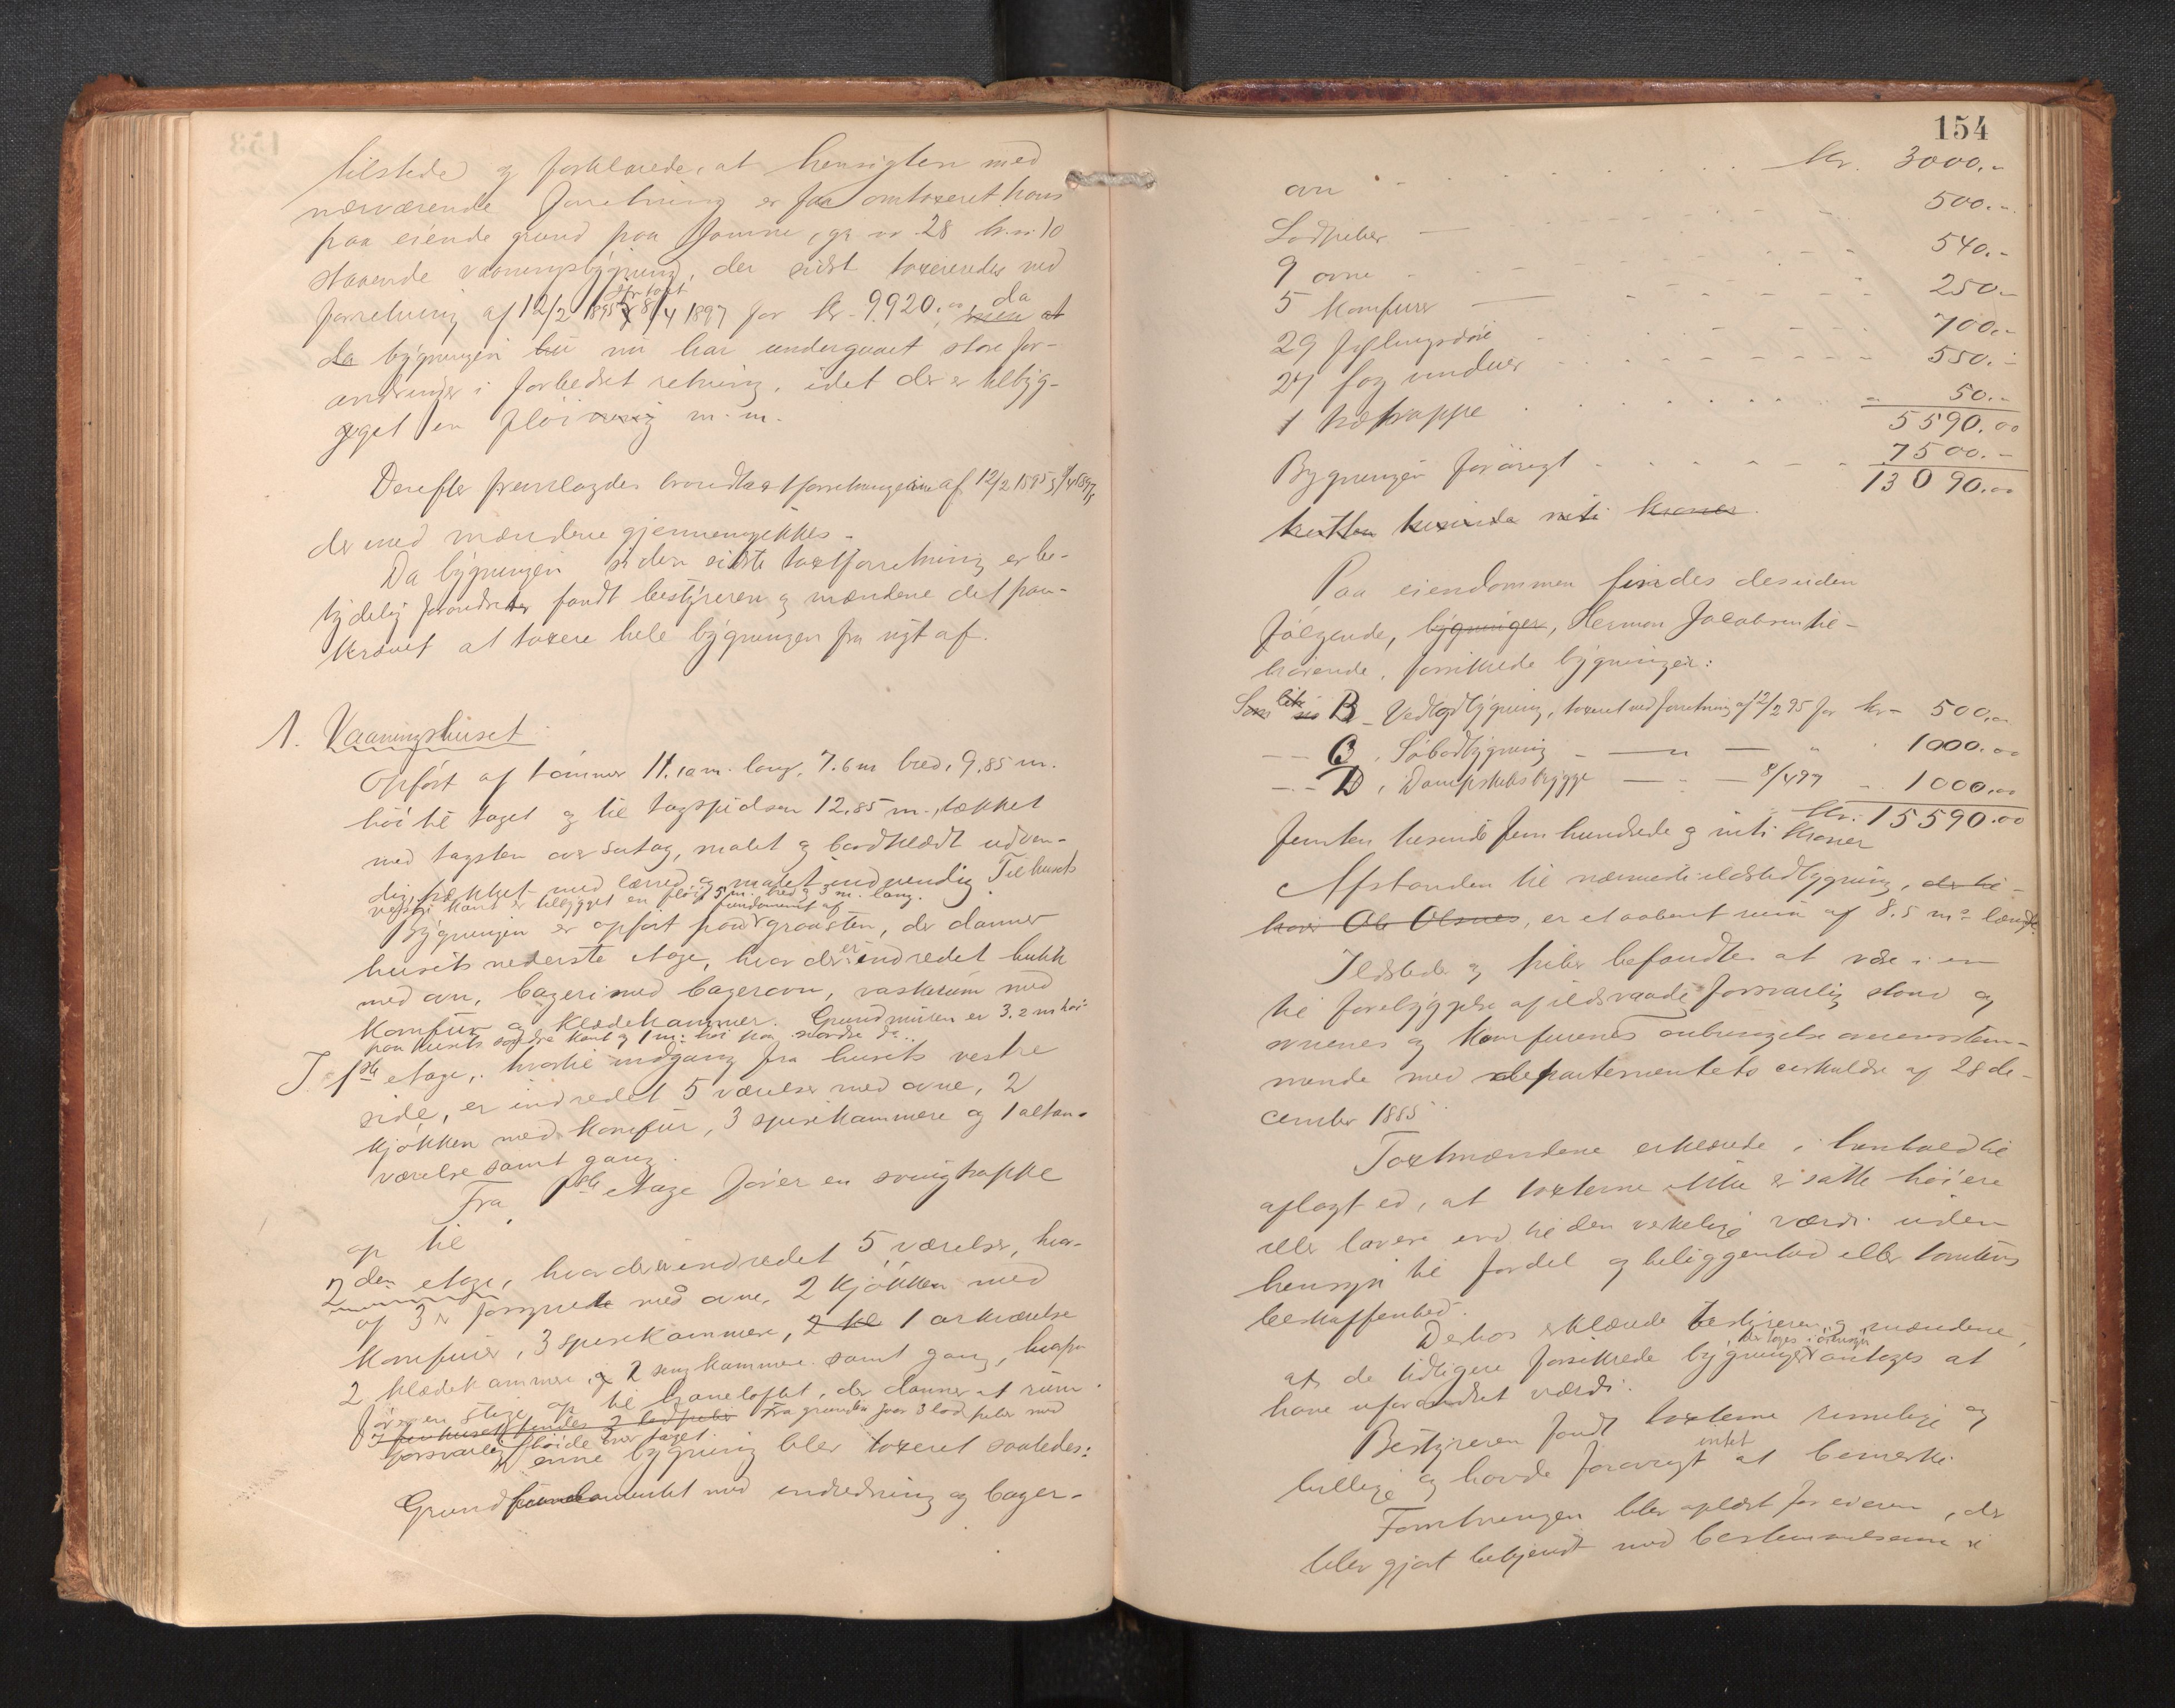 tilstede og forklarede, at hensigten med
nærværende forretning er faa omtaxeret hans
paa eiende grund paa Jomne, gr. nr. 28 br. nr. 10
staaende vaaningsbygning, der sidst taxeredes ved
forretning af 12/2 1895 & 8/4 1897 for kr. 9920.00, men at da
da bygningen nu har undergaaet store for-
andringer i forbedret retning, idet der er tilbyg-
get en fløi m. m.
Derefter fremlagdes brandtaxtforretningerne af 12/2 1895 og 8/4 1897,
der med mændene gjennemgikkes.
Da bygningen siden sidste taxtforretning er be-
tydelig forandret fandt bestyreren og mændene det paa-
krævet at taxere hele bygningen fra nyt af.
1. Vaaningshuset
Opført af tømmer 11.10 m. lang, 7.6 m bred, 9.85 m.
høi til taget og til tagspidsen 12.85 m., tækket
med tagsten over sutag, malet og bordklædt udven-
dig, trækket med lærred og malet indvendig. Til husets
vestre kant er tilbygget en fløi 5 m. bred og 3 m. lang.
Bygningen er opført paa fundament af graasten, der danner
husets nederste etage, hvor der er indredet butik
med ovn, bageri med bagerovn, vaskerum med
komfur og klædekammer. Grundmuren er 3.2 m høi
paa husets søndre kant og 1 m. høi paa nordre do.
I 1ste etage, hvortil indgang fra husets vestre
side, er indredet 5 værelser med ovne, 2
kjøkken med komfur, 3 spisekammere og 1 altan-
værelse samt gang.
Fra 1ste etage fører en svingtrappe
op til
2den etage, hvor der er indredet 5 værelser, hvor-
af 3 er forsynet med ovne, 2 kjøkken med
komfurer, 3 spisekammere, 2 kl 1 arkværelse
2 klædekammere og 2 sengkammere samt gang, hvorfra
fører en stige op til haneloftet, der danner et rum.
I forhuset findes 2 lodpiber Fra grunden gaar 3 lodpiber med
forsvarlig høide over taget.
Denne bygning blev taxeret saaledes:
Grundfundamentet med indredning og bager-
154
ovn . . . . . . . kr. 3000.-
Lodpiber — . . . . . 500.-
9 ovne . . . . . . 540.-
5 komfurer — . . . . 250.-
29 fyldingsdøre . . . . 700.-
27 fag vinduer . . . . . 550.-
1 trætrappe . . . . . . 50.-
5590.00
Bygningen forøvrigt . . . . 7500.-
13090.00
tretten tusinde niti kroner.
Paa eiendommen findes desuden
følgende, bygninger, Herman Jacobsen til-
hørende, forsikrede bygninger:
Som litr B. Vedlodbygning, taxeret ved forretning af 12/2 95 for kr. 500.00
— C. Søbodbygning — " — " 1000.00
— D, Dampskibsbrygge — " — 8/4 97 " 1000.00
kr. 15590.00
Femten tusinde fem hundrede og niti kroner
Afstanden til nærmeste ildstedbygning, der til-
hører Ole Olsnes, er et aabent rum af 8.5 m. længde.
Ildsteder og piber befandtes at være i en
til forebyggelse af ildsvaade forsvarlig stand og
ovnenes og komfurenes anbringelse overensstem-
mende med departementets cirkulære af 28 de-
cember 1885.
Taxtmændene erklærede i henhold til
aflagt ed, at taxterne ikke er satte høiere
eller lavere end til den virkelige værdi uden
hensyn til fordel og beliggenhed eller tomtens
beskaffenhed.
Derhos erklærede bestyreren og mændene,
at de tidligere forsikrede bygninger, der toges i øiesyn, antages at
have uforandret værdi.
Bestyreren fandt taxterne rimelige og
billige og havde forøvrigt intet at bemerke.
Forretningen blev oplæst for eieren, der
blev gjort bekjendt med bestemmelserne i